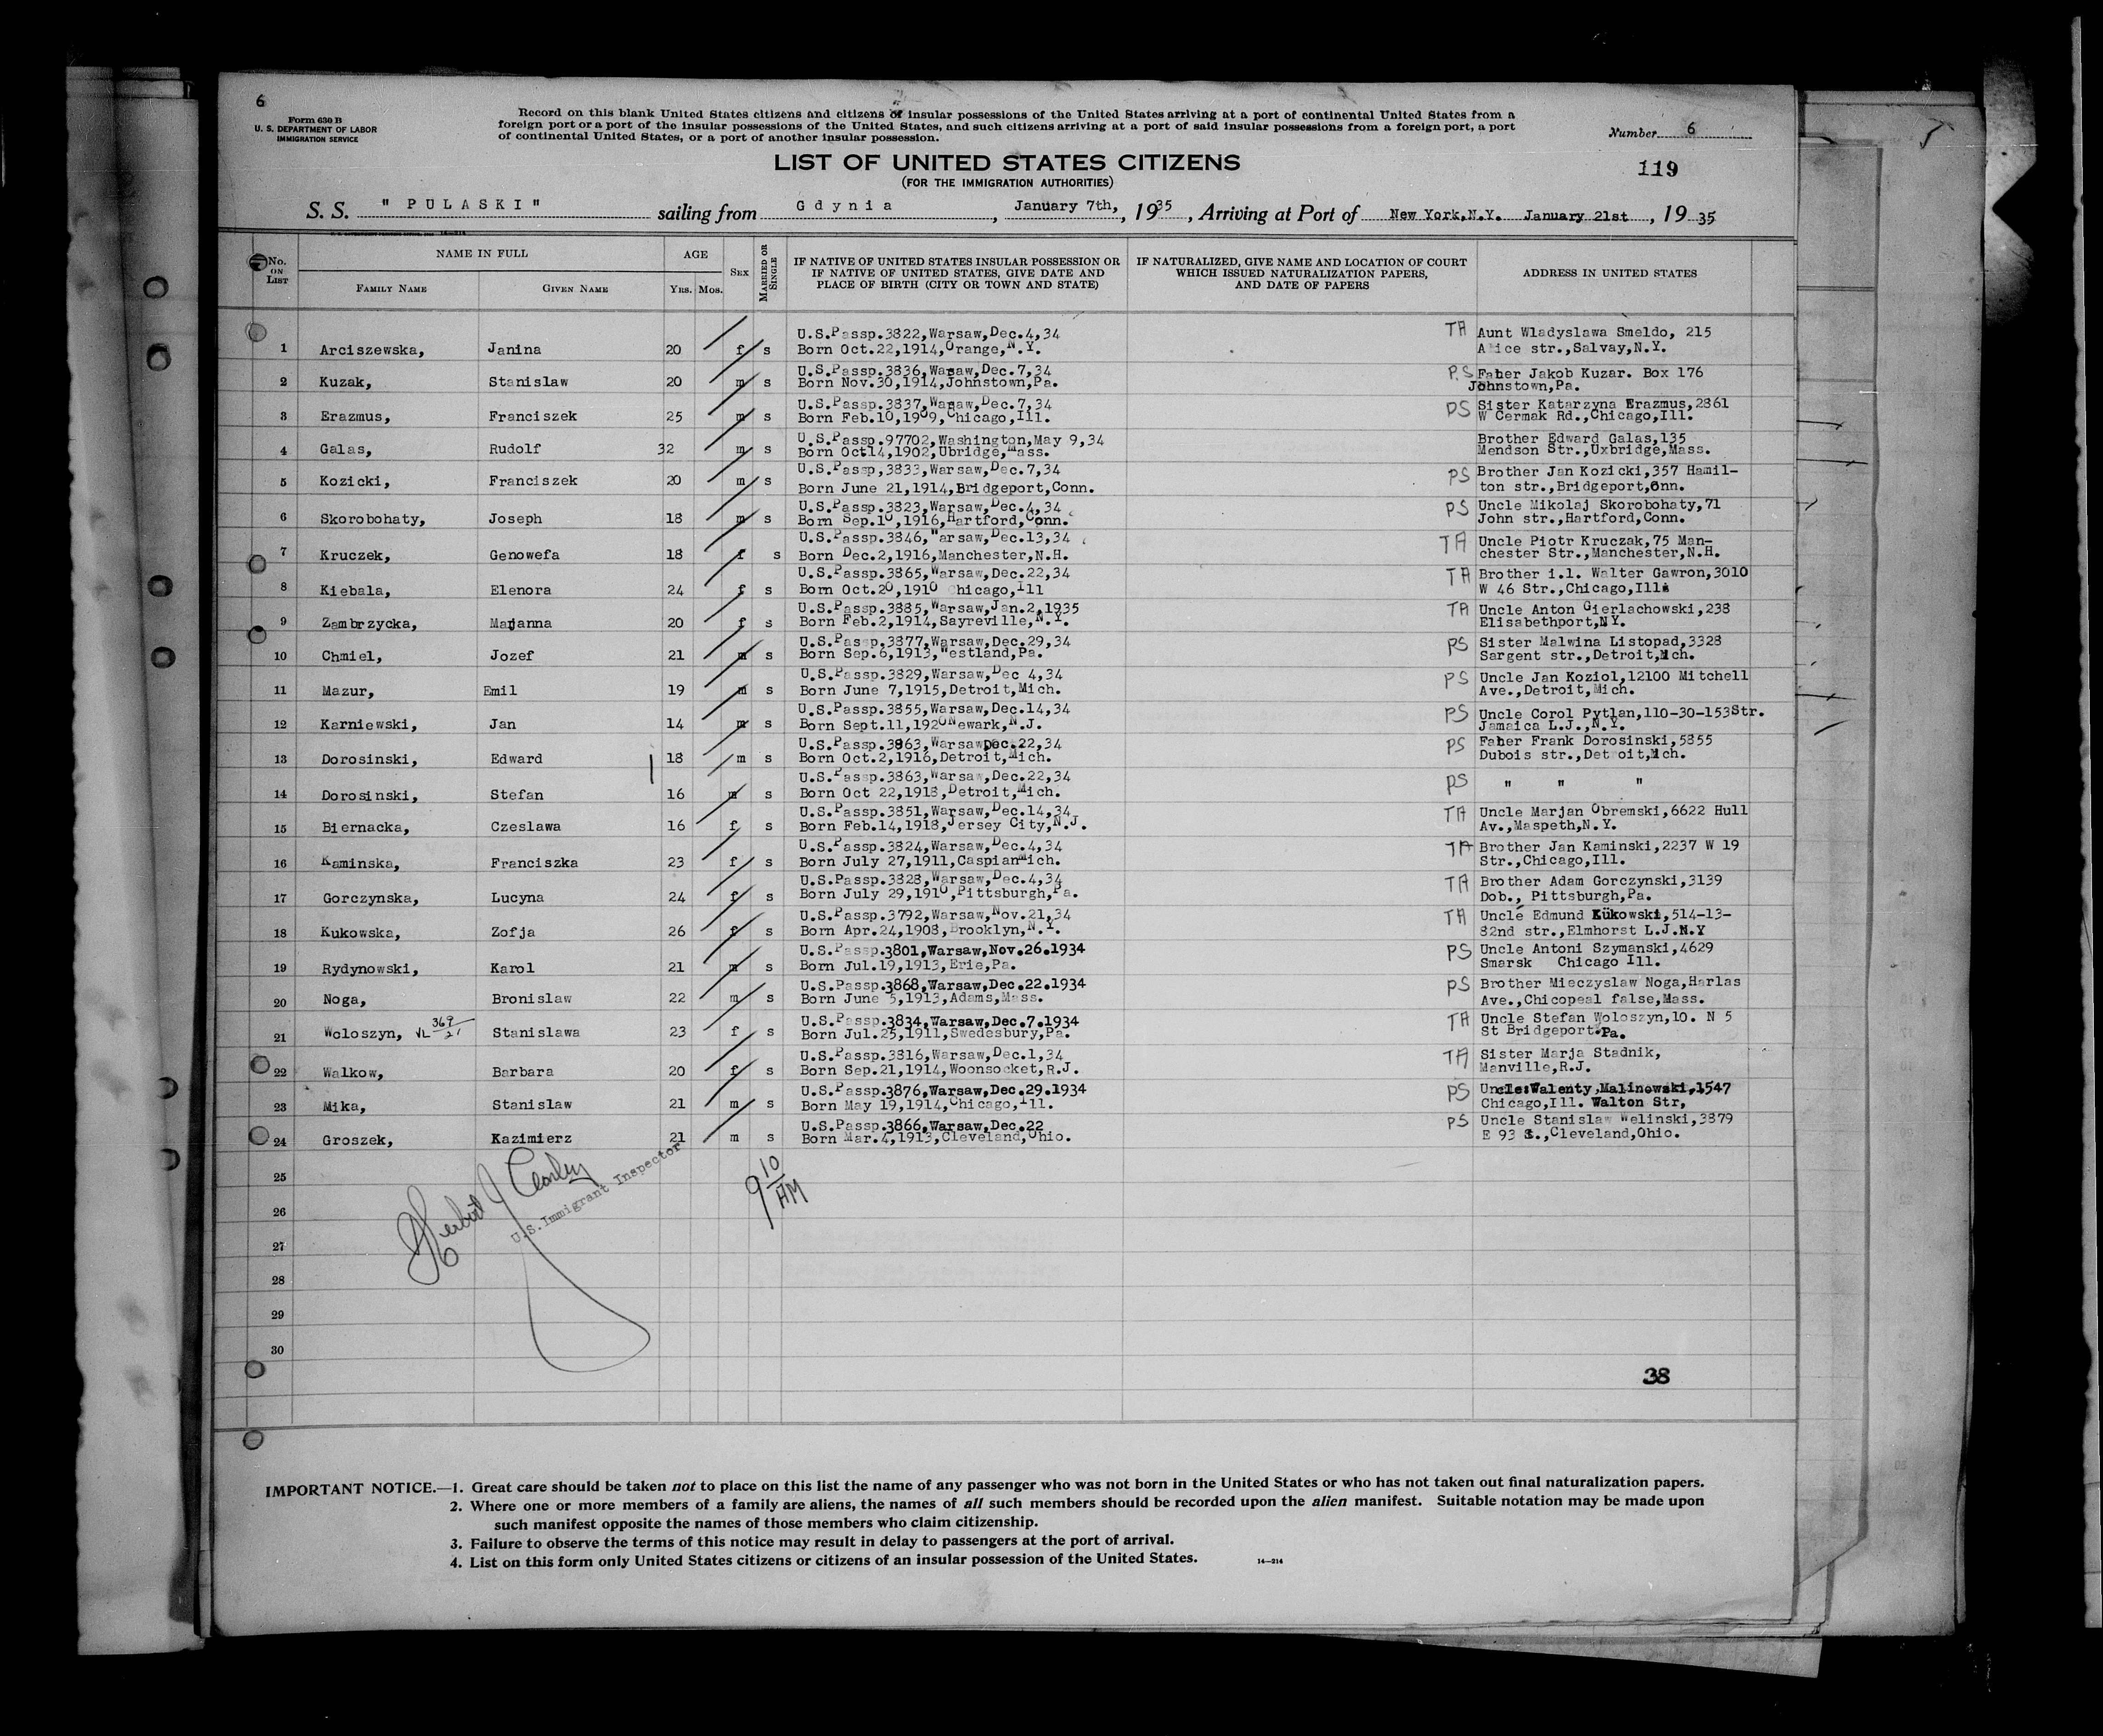 6
Form 630 B
U. S. DEPARTMENT OF LABOR
IMMIGRATION SERVICE
Record on this blank United States citizens and citizens of insular possessions of the United States arriving at a port of continental United States from a
foreign port or a port of the insular possessions of the United States, and such citizens arriving at a port of said insular possessions from a foreign port, a port
of continental United States, or a port of another insular possession.
Number 6
LIST OF UNITED STATES CITIZENS
119
(FOR THE IMMIGRATION AUTHORITIES)
S. S. " PULASKI " sailing from Gdynia , January 7th, , 1935 , Arriving at Port of New York,N.Y. January 21st , 1935
No. ON LIST NAME IN FULL FAMILY NAME GIVEN NAME AGE YRS. MOS. SEX MARRIED OR SINGLE
IF NATIVE OF UNITED STATES INSULAR POSSESSION OR
IF NATIVE OF UNITED STATES, GIVE DATE AND
PLACE OF BIRTH (CITY OR TOWN AND STATE)
IF NATURALIZED, GIVE NAME AND LOCATION OF COURT
WHICH ISSUED NATURALIZATION PAPERS,
AND DATE OF PAPERS
ADDRESS IN UNITED STATES
U.S.Passp.3822,Warsaw,Dec.4,34 TA Aunt Wladyslawa Smeldo, 215
1 Arciszewska, Janina 20 f s Born Oct.22,1914,Orange,N.Y. Alice str.,Salvay,N.Y.
U.S.Passp.3836,Warsaw,Dec.7,34 PS Faher Jakob Kuzar. Box 176
2 Kuzak, Stanislaw 20 m s Born Nov.30,1914,Johnstown,Pa. Johnstown,Pa.
U.S.Passp.3837,Warsaw,Dec.7,34 PS Sister Katarzyna Erazmus,2861
3 Erazmus, Franciszek 25 m s Born Feb.10,1909,Chicago,Ill. W Cermak Rd.,Chicago,Ill.
U.S.Passp.97702,Washington,May 9,34 Brother Edward Galas,135
4 Galas, Rudolf 32 m s Born Oct14,1902,Ubridge,Mass. Mendson Str.,Uxbridge,Mass.
U.S.Passp,3833,Warsaw,Dec.7,34 PS Brother Jan Kozicki,357 Hamil-
5 Kozicki, Franciszek 20 m s Born June 21,1914,Bridgeport,Conn. ton str.,Bridgeport,Conn.
U.S.Passp.3823,Warsaw,Dec.4,34 PS Uncle Mikolaj Skorobohaty,71
6 Skorobohaty, Joseph 18 m s Born Sep.10,1916,Hartford,Conn. John str.,Hartford,Conn.
U.S.Passp.3846,Warsaw,Dec.13,34 TA Uncle Piotr Kruczak,75 Man-
7 Kruczek, Genowefa 18 f s Born Dec.2,1916,Manchester,N.H. chester Str.,Manchester,N.H.
U.S.Passp.3865,Warsaw,Dec.22,34 TA Brother i.l. Walter Gawron,3010
8 Kiebala, Elenora 24 f s Born Oct.20,1910 Chicago,Ill W 46 Str.,Chicago,Ill.
U.S.Passp.3885,Warsaw,Jan.2,1935 TA Uncle Anton Gierlachowski,238
9 Zambrzycka, Marjanna 20 f s Born Feb.2,1914,Sayreville,N.Y. Elisabethport,NY.
U.S.Passp,3877,Warsaw,Dec.29,34 PS Sister Malwina Listopad,3328
10 Chmiel, Jozef 21 m s Born Sep.6,1913,Westland,Pa. Sargent str.,Detroit,Mch.
U.S.Passp.3829,Warsaw,Dec 4,34 PS Uncle Jan Koziol,12100 Mitchell
11 Mazur, Emil 19 m s Born June 7,1915,Detroit,Mich. Ave.,Detroit,Mich.
U.S.Passp.3855,Warsaw,Dec.14,34 PS Uncle Corol Pytlan,110-30-153Str.
12 Karniewski, Jan 14 m s Born Sept.11,1920Newark,N.J. Jamaica L.J.,N.Y.
U.S.Passp.3863,WarsawDec.22,34 PS Faher Frank Dorosinski,5855
13 Dorosinski, Edward 18 m s Born Oct.2,1916,Detroit,Mich. Dubois str.,Detroit,Mch.
U.S.Passp.3863,Warsaw,Dec.22,34 PS " " "
14 Dorosinski, Stefan 16 m s Born Oct 22,1918,Detroit,Mich.
U.S.Passp.3851,Warsaw,Dec.14,34 TA Uncle Marjan Obremski,6622 Hull
15 Biernacka, Czeslawa 16 f s Born Feb.14,1918,Jersey City,N.J. Av.,Maspeth,N.Y.
U.S.Passp.3824,Warsaw,Dec.4,34 TA Brother Jan Kaminski,2237 W 19
16 Kaminska, Franciszka 23 f s Born July 27,1911,CaspianMich. Str.,Chicago,Ill.
U.S.Passp.3828,Warsaw,Dec.4,34 TA Brother Adam Gorczynski,3139
17 Gorczynska, Lucyna 24 f s Born July 29,1910,Pittsburgh,Pa. Dob., Pittsburgh,Pa.
U.S.Passp.3792,Warsaw,Nov.21,34 TA Uncle Edmund Kukowski,514-13-
18 Kukowska, Zofja 26 f s Born Apr.24,1908,Brooklyn,N.Y. 82nd str.,Elmhorst L.J.N.Y
U.S.Passp.3801,Warsaw,Nov.26.1934 PS Uncle Antoni Szymanski,4629
19 Rydynowski, Karol 21 m s Born Jul.19,1913,Erie,Pa. Smarsk Chicago Ill.
U.S.Passp.3868,Warsaw,Dec.22.1934 PS Brother Mieczyslaw Noga,Harlas
20 Noga, Bronislaw 22 m s Born June 5,1913,Adams,Mass. Ave.,Chicopeal false,Mass.
U.S.Passp.3834,Warsaw,Dec.7.1934 TA Uncle Stefan Woloszyn,10. N 5
21 Woloszyn, VL 369/21 Stanislawa 23 f s Born Jul.25,1911,Swedesbury,Pa. St Bridgeport.Pa.
U.S.Passp.3816,Warsaw,Dec.1,34 TA Sister Marja Stadnik,
22 Walkow, Barbara 20 f s Born Sep.21,1914,Woonsocket,R.J. Manville,R.J.
U.S.Passp.3876,Warsaw,Dec.29.1934 PS Uncle:Walenty,Malinowski,1547
23 Mika, Stanislaw 21 m s Born May 19,1914,Chicago,Ill. Chicago,Ill. Walton Str,
U.S.Passp.3866,Warsaw,Dec.22 PS Uncle Stanislaw Welinski,3879
24 Groszek, Kazimierz 21 m s Born Mar.4,1913,Cleveland,Ohio. E 93 S.,Cleveland,Ohio.
25
26
27
28
29
30
Herbert J
U.S.Immigrant Inspector
9 10 AM
38
IMPORTANT NOTICE.—1. Great care should be taken not to place on this list the name of any passenger who was not born in the United States or who has not taken out final naturalization papers.
2. Where one or more members of a family are aliens, the names of all such members should be recorded upon the alien manifest. Suitable notation may be made upon
such manifest opposite the names of those members who claim citizenship.
3. Failure to observe the terms of this notice may result in delay to passengers at the port of arrival.
4. List on this form only United States citizens or citizens of an insular possession of the United States.
14—314